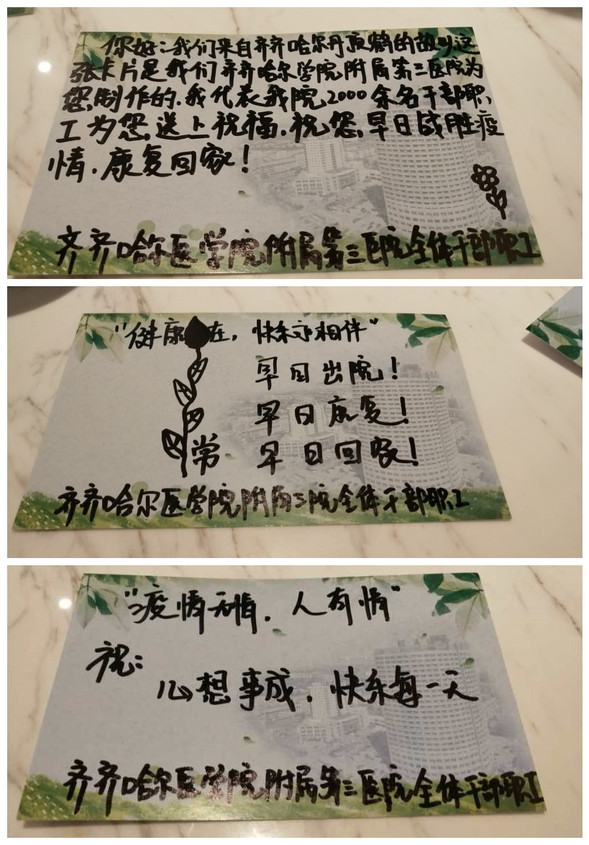 你好:我们来自齐齐哈尔丹顶鹤的故乡这
张卡片是我们齐齐哈尔学院附属第三医院为
您制作的.我代表我院2000余名干部职
工为您送上祝福.祝您早日战胜疫
情.康复回家!
齐齐哈尔医学院附属第三医院全体干部职工
"健康 在,快乐永相伴"
早日出院!
早日康复!
常 早日回家!
齐齐哈尔医学院附属三院全体干部职工
"疫情无情.人有情"
祝:
心想事成.快乐每一天
齐齐哈尔医学院附属第三医院全体干部职工